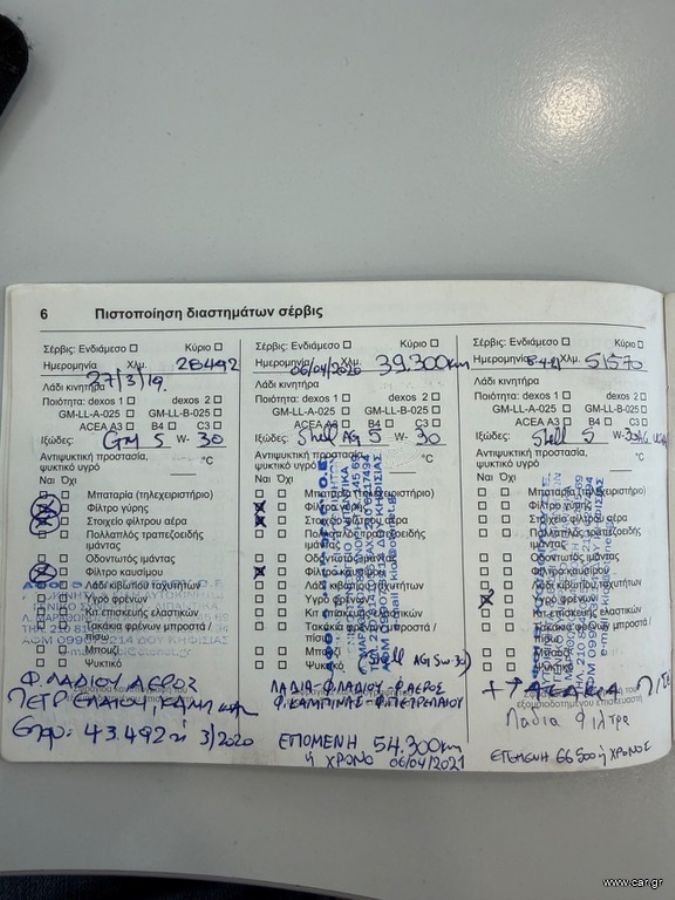 6 Πιστοποίηση διαστημάτων σέρβις
Σέρβις: Ενδιάμεσο Κύριο
Ημερομηνία Χλμ. 28492
27/3/19.
Λάδι κινητήρα
Ποιότητα: dexos 1 dexos 2
GM-LL-A-025 GM-LL-B-025
ACEA A3 B4 C3
Ιξώδες: GM 5 W- 30
Αντιψυκτική προστασία,
ψυκτικό υγρό °C
Ναι Όχι
Μπαταρία (τηλεχειριστήριο)
Φίλτρο γύρης
Στοιχείο φίλτρου αέρα
Πολλαπλός τραπεζοειδής
ιμάντας
Οδοντωτός ιμάντας
Φίλτρο καυσίμου
Λάδι κιβωτίου ταχυτήτων
Υγρό φρένων
Κιτ επισκευής ελαστικών
Τακάκια φρένων μπροστά /
πίσω
Μπουζί
Ψυκτικό
Φ. ΛΑΔΙΟΥ ΑΕΡΟΣ
ΠΕΤΡΕΛΑΙΟΥ,
43.492 ή 3/2020
Σέρβις: Ενδιάμεσο Κύριο
Ημερομηνία Χλμ. 39.300km
06/04/2020
Λάδι κινητήρα
Ποιότητα: dexos 1 dexos 2
GM-LL-A-025 GM-LL-B-025
ACEA A3 B4 C3
Ιξώδες: Shell AG 5 W- 30
Αντιψυκτική προστασία,
ψυκτικό υγρό °C
Ναι Όχι
Μπαταρία (τηλεχειριστήριο)
Φίλτρο γύρης
Στοιχείο φίλτρου αέρα
Πολλαπλός τραπεζοειδής
ιμάντας
Οδοντωτός ιμάντας
Φίλτρο καυσίμου
Λάδι κιβωτίου ταχυτήτων
Υγρό φρένων
Κιτ επισκευής ελαστικών
Τακάκια φρένων μπροστά /
πίσω
Μπουζί
Ψυκτικό
AG 5w-30)
ΛΑΔΙΑ-Φ.ΛΑΔΙΟΥ-Φ.ΑΕΡΟΣ
Φ.ΚΑΜΠΙΝΑΣ-Φ.ΠΕΤΡΕΛΑΙΟΥ
ΕΠΟΜΕΝΗ 54.300km
ή ΧΡΟΝΟ 06/04/2021
Σέρβις: Ενδιάμεσο Κύριο
Ημερομηνία 8-4-21 Χλμ. 51570
Λάδι κινητήρα
Ποιότητα: dexos 1 dexos 2
GM-LL-A-025 GM-LL-B-025
ACEA A3 B4 C3
Ιξώδες: Shell 5 W-30 AG
Αντιψυκτική προστασία,
ψυκτικό υγρό °C
Ναι Όχι
Μπαταρία (τηλεχειριστήριο)
Φίλτρο γύρης
Στοιχείο φίλτρου αέρα
Πολλαπλός τραπεζοειδής
ιμάντας
Οδοντωτός ιμάντας
Φίλτρο καυσίμου
Λάδι κιβωτίου ταχυτήτων
Υγρό φρένων
Κιτ επισκευής ελαστικών
Τακάκια φρένων μπροστά /
πίσω
Μπουζί
Ψυκτικό
εξουσιοδοτημένου επισκευαστή
Λάδια Φίλτρα
ΕΠΟΜΕΝΗ 66500 ή ΧΡΟΝΟΣ
www.car.gr